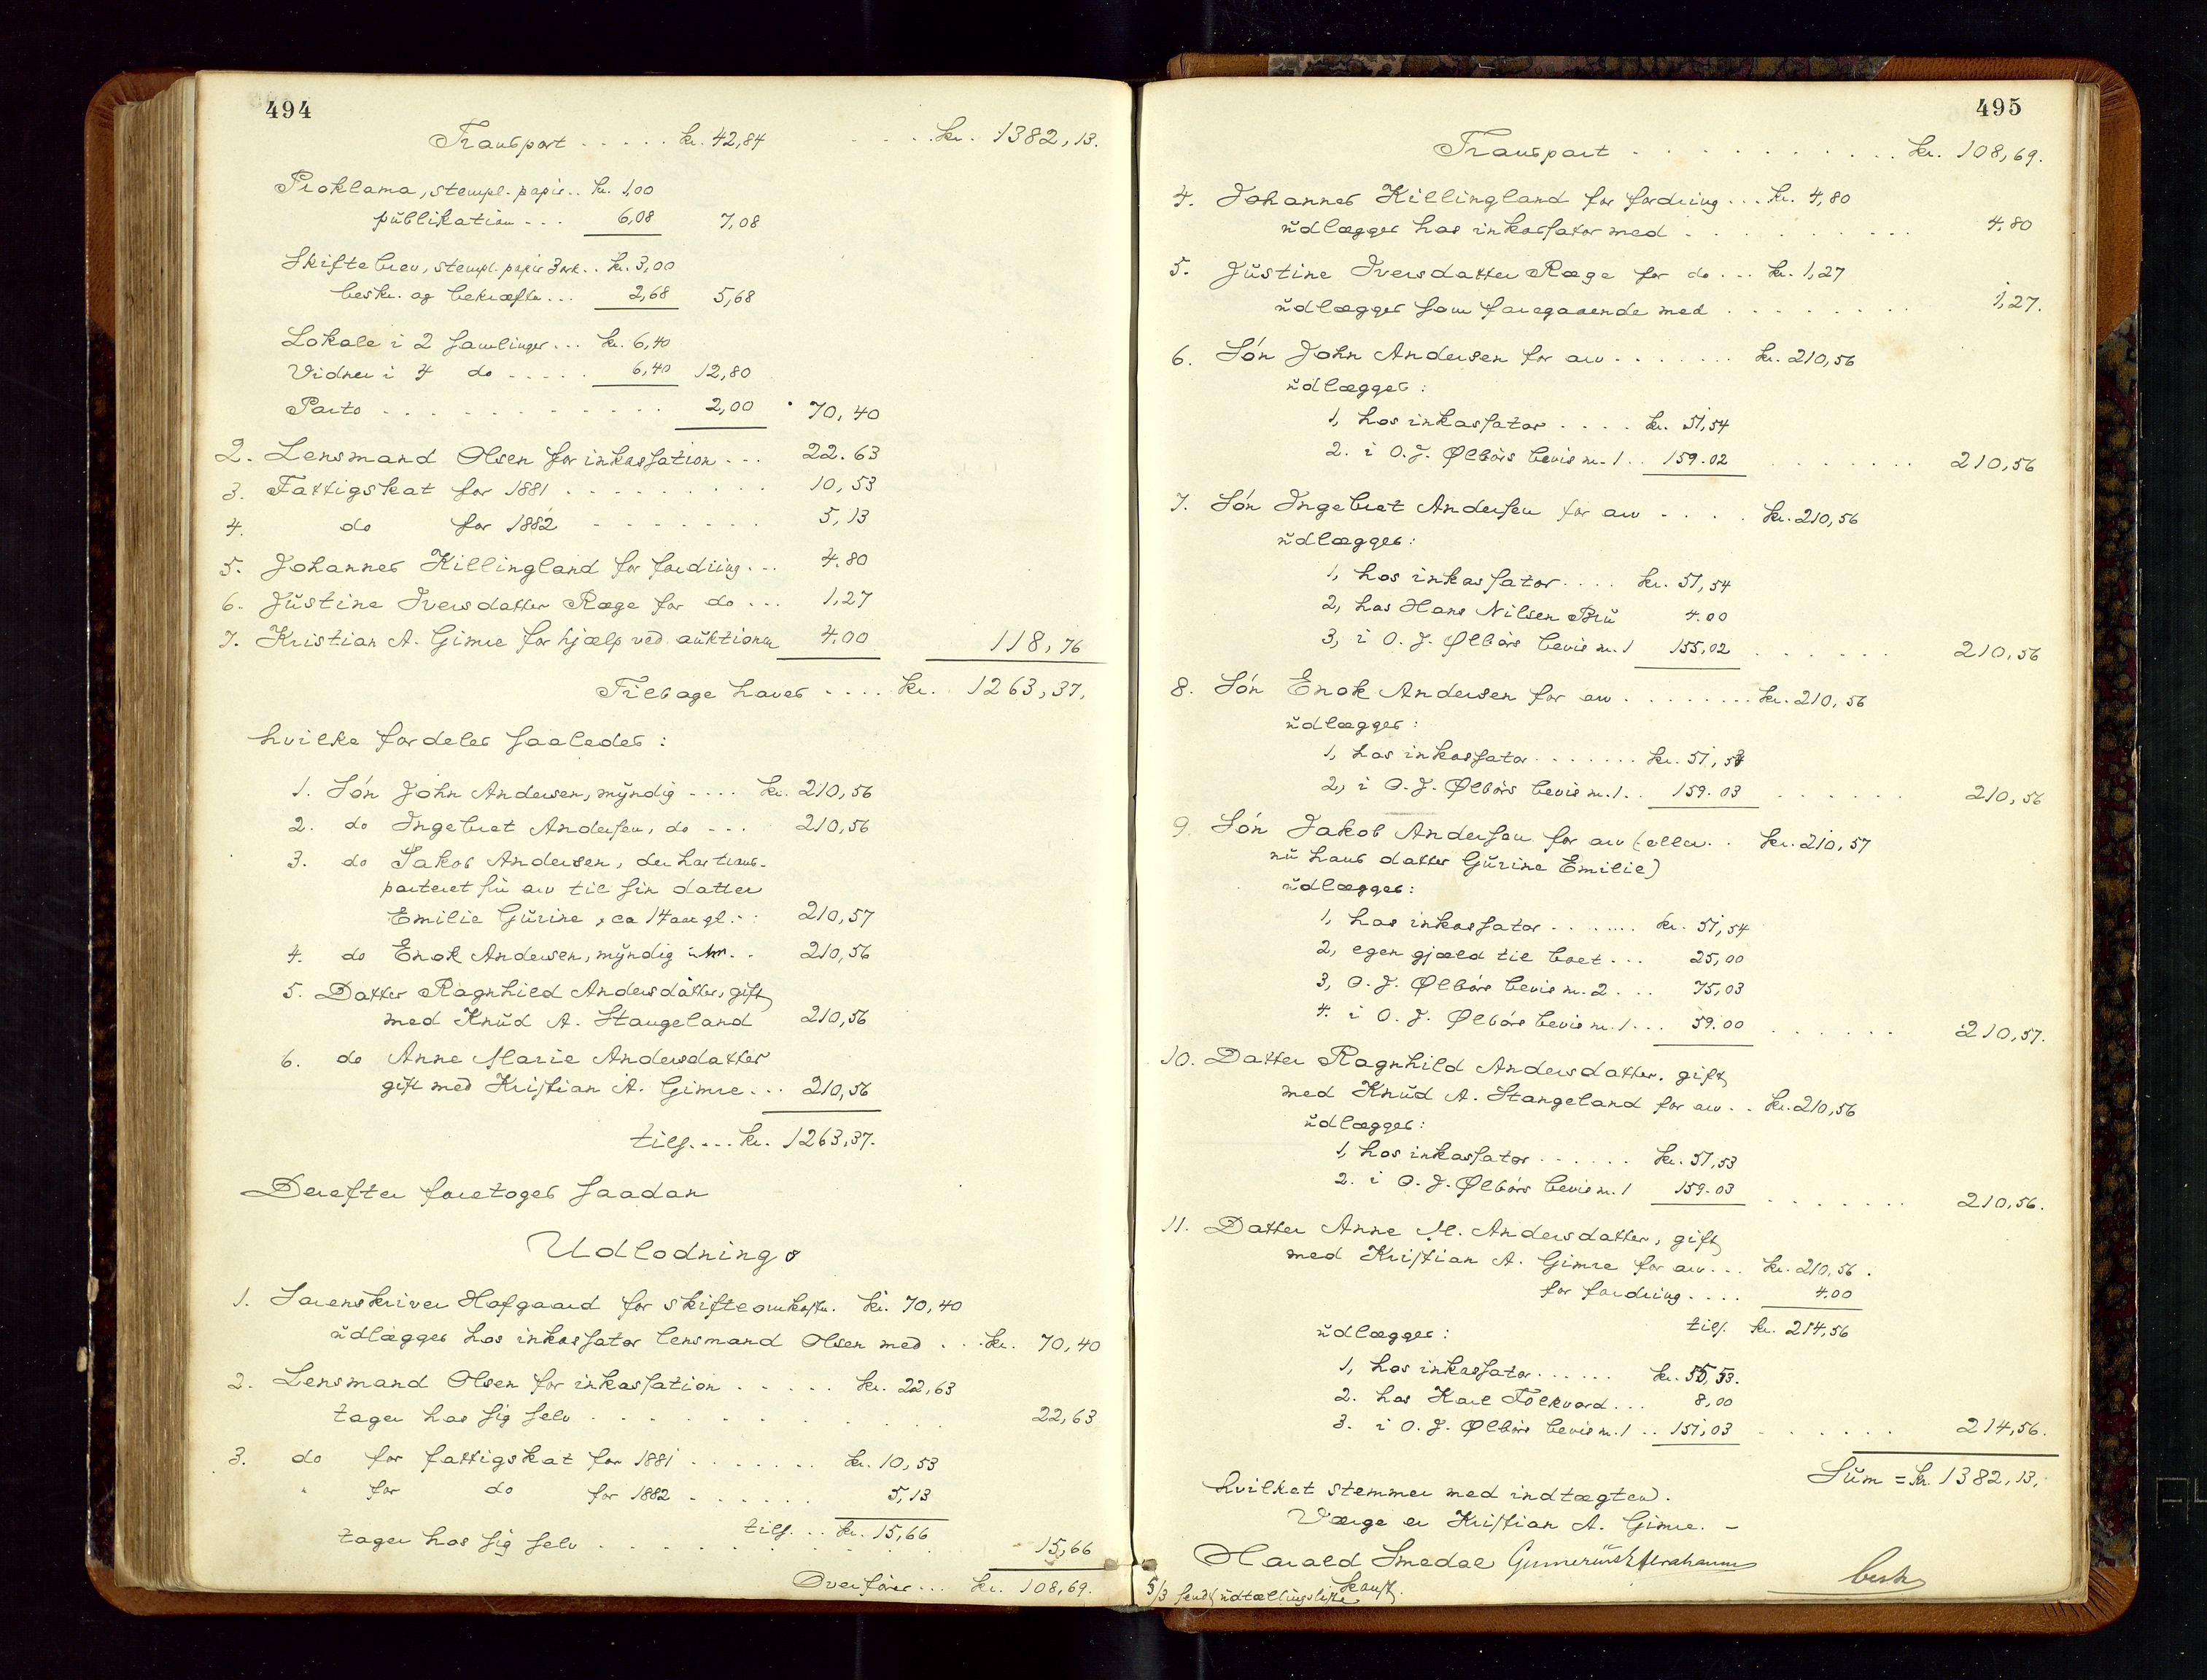 494
Transport ..... kr. 42,84 ... kr. 1382,13.
Proklama, stempl. papir.. kr. 1,00
publikation ... 6,08 7,08
Skiftebrev, stempl. papir 3 ark.. kr. 3,00
beskr. og bekræftn... 2,68 5,68
Lokale i 2 samlinger... kr. 6,40
Vidner i 4 do ..... 6,40 12,80
Porto ............ 2,00 70,40
2. Lensmand Olsen for inkassation ... 22.63
3. Fattigskat for 1881 ......... 10,53
4. do for 1882 ....... 5,13
5. Johannes Killingland for fordring... 4.80
6. Justine Iversdatter Ræge for do ... 1,27
7. Kristian A. Gimre for hjælp ved auktionen 4.00 118,76
Tilbage haves .... kr. 1263,37.
hvilke fordeles saaledes:
1. Søn John Andersen, myndig .... kr. 210,56
2. do Ingebret Andersen, do ... 210,56
3. do Jakob Andersen, der har trans-
porteret sin arv til sin datter
Emilie Gurine, ca 14 aar gl.. : 210,57
4. do Enok Andersen, myndig .. 210,56
5. Datter Ragnhild Andersdatter, gift
med Knud A. Stangeland 210,56
6. do Anne Marie Andersdatter
gift med Kristian A. Gimre... 210,56
tils.... kr. 1263,37.
Derefter foretoges saadan
Udlodning:
1. Sorenskriver Hofgaard for skifteomkostn. kr. 70,40
udlægges hos inkassator lensmand Olsen med . . . kr. 70,40
2. Lensmand Olsen for inkassation ..... kr. 22,63
tager hos sig selv ............ 22,63
3. do for fattigskat for 1881 ....... kr. 10,53
" for do for 1882 ...... 5,13
tils. .. kr. 15,66
tager hos sig selv ........... 15,66
Overføres... kr. 108,69.
495
Transport ........... kr. 108,69.
4. Johannes Killingland for fordring... kr. 4,80
udlægges hos inkassator med .......... 4.80
5. Justine Iversdatter Ræge for do... kr. 1,27
udlægges som foregaaende med ........ 1,27.
6. Søn John Andersen for arv ....... kr. 210,56
udlægges:
1, hos inkassator .... kr. 51,54
2. i O. J. Ølbørs bevis nr. 1.. 159.02 ....... 210,56
7. Søn Ingebret Andersen for arv .... kr. 210,56
udlægges:
1, hos inkassator.... kr. 51,54
2, hos Hans Nilsen Bru 4.00
3, i O. J. Ølbørs bevis nr. 1 155,02 ...... 210,56
8. Søn Enok Andersen for arv ....... kr. 210,56
udlægges:
1, hos inkassator ....... kr. 51,53
2, i O. J. Ølbørs bevis nr. 1.. 159.03 ...... 210,56
9. Søn Jakob Andersen for arv (eller.. kr. 210,57
nu hans datter Gurine Emilie)
udlægges:
1, hos inkassator ....... kr. 51,54
2, egen gjæld til boet ... 25,00
3, O. J. Ølbørs bevis nr. 2 ... 75,03
4. i O. J. Ølbørs bevis nr. 1... 59.00 ...... 210,57.
10. Datter Ragnhild Andersdatter, gift
med Knud A. Stangeland for arv.. kr. 210,56
udlægges:
1, hos inkassator ...... kr. 51,53
2. i O. J. Ølbørs bevis nr. 1 159.03 ....... 210,56.
11. Datter Anne M. Andersdatter, gift
med Kristian A. Gimre for arv... kr. 210,56.
for fordring.... 4.00
udlægges: tils. kr. 214,56
1, hos inkassator...... kr. 55,53.
2. hos Karl Folkvord... 8,00
3. i O. J. Ølbørs bevis nr. 1.. 151,03 ...... 214,56.
Sum = kr 1382,13.
hvilket stemmer med indtægten.
Værge er Kristian A. Gimre. -
Harald Smedal
konst.
5/3 sendt udtællingsliste